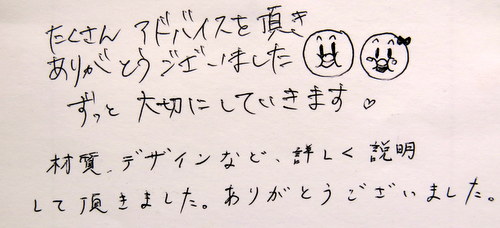 たくさん アドバイスを頂き
ありがとうございました
ずっと大切にしていきます♡
材質、デザインなど、詳しく説明
して頂きました。ありがとうございました。